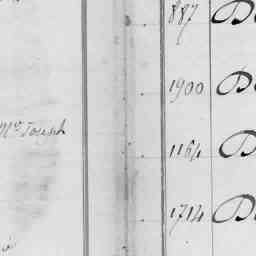 887 D
1900 D
Mr. Joseph
1164 D
1714 D